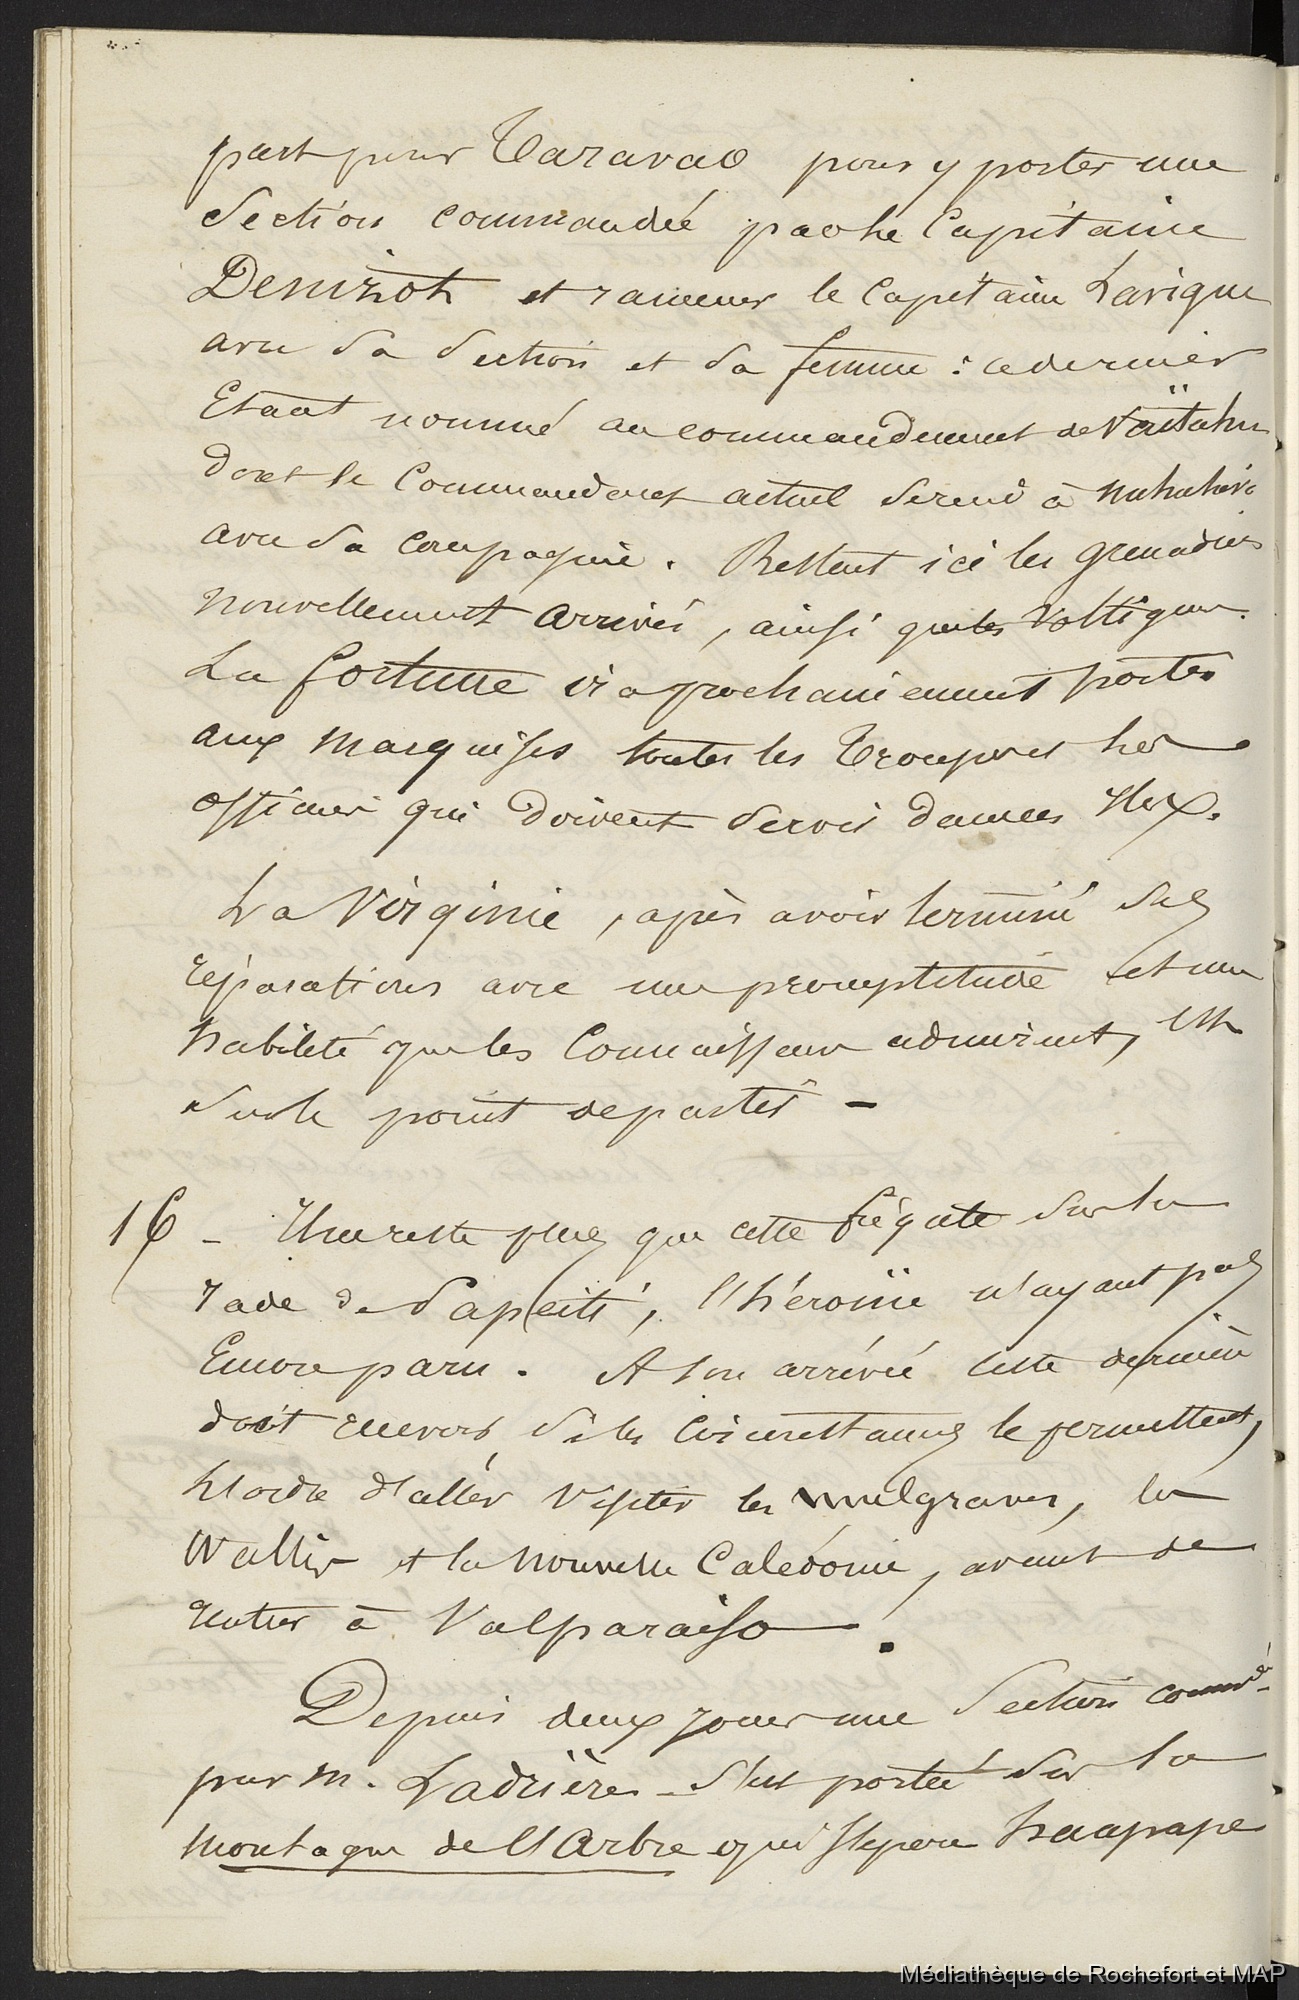 part pour Taravao pour y porter une
Section commandée par le Capitaine
Denizot et ramener le Capitaine Lavigne
avec sa section et sa femme : ce dernier
Etant nommé au commandement de Vaïtahu
dont le Commandant actuel à
avec sa compagnie. Restent ici les grenadiers
nouvellement arrivés, ainsi que les Voltigeurs.
La fortune ira prochainement porter
aux Marquises toutes les Troupes et les
officiers qui doivent servir dans ces
La Virginie, après avoir terminé ses
réparations avec une promptitude et une
habileté que les Connaisseurs admirent, est
sur le point de partir -
16 - Il ne reste plus que cette frégate sur la
rade de Papeïti, l'héroïne n'ayant pas
Encore paru. A son arrivée cette dernière
doit recevoir, si les circonstances le permettent,
l'ordre d'aller visiter les mulgraves, les
Wallis et la Nouvelle Calédonie, avant de
rentrer à Valparaiso.
Depuis deux jours une Section commdée
par M. Ladrière s'est portée sur la
montagne de l'Arbre qui sépare haapape
Médiathèque de Rochefort et MAP